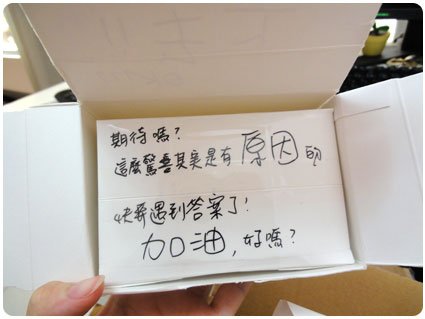 期待嗎?
這麼驚喜其實是有原因的
快要遇到答案了!
加油,好嗎?